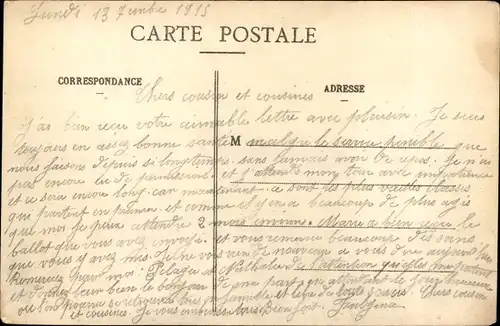 Lundi 13 1915
CARTE POSTALE
CORRESPONDANCE
ADRESSE
Chers cousin et cousines
J'ai bien reçu votre aimable lettre avec plaisir. Je suis
toujours en assez bonne santé M malgré le pénible que
nous faisons depuis si longtemps sans jamais avoir de repos. Je n'ai
pas encore eu de permission et j'attends mon tour avec impatience
et ce sera encore long car maintenant ce sont les plus vieilles classes
qui partent en et comme il y en a beaucoup de plus agés
que moi je peux attendre 2 mois environ. Marie a bien reçu le
ballot que vous avez envoyé et vous remercie beaucoup
que vous y avez mis. Je ne vois rien de nouveau a vous dire
Remerciez pour moi Pelagie et Nathalie de l'attention qu'elles me portent
et donnez leur bien le bonjour de ma part en attendant le jour
toute Votre cousin
et cousines. Je vous bien fort.